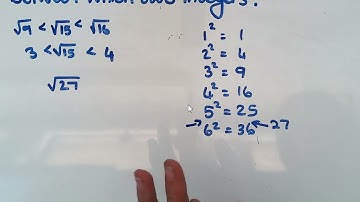 between which two integers?
√9 < √15 < √16
3 < √15 < 4
√27
1² = 1
2² = 4
3² = 9
4² = 16
5² = 25
→ 6² = 36 ← 27